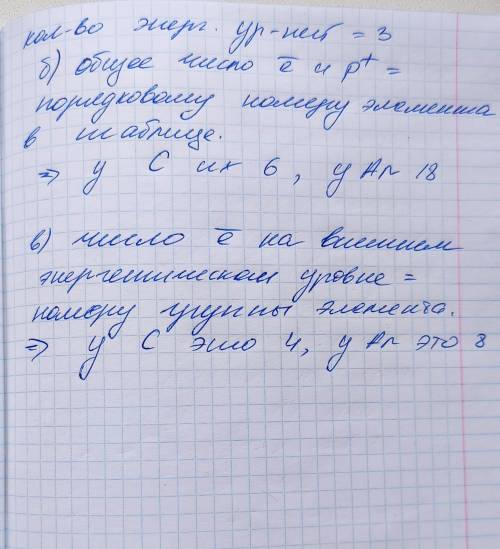 кол-во энерг. ур-ней = 3
б) общее число ē и p⁺ =
порядковому номеру элемента
в таблице.
⇒ у C их 6, у Ar 18
в) число ē на внешнем
энергетическом уровне =
номеру группы элемента.
⇒ у C это 4, у Ar это 8